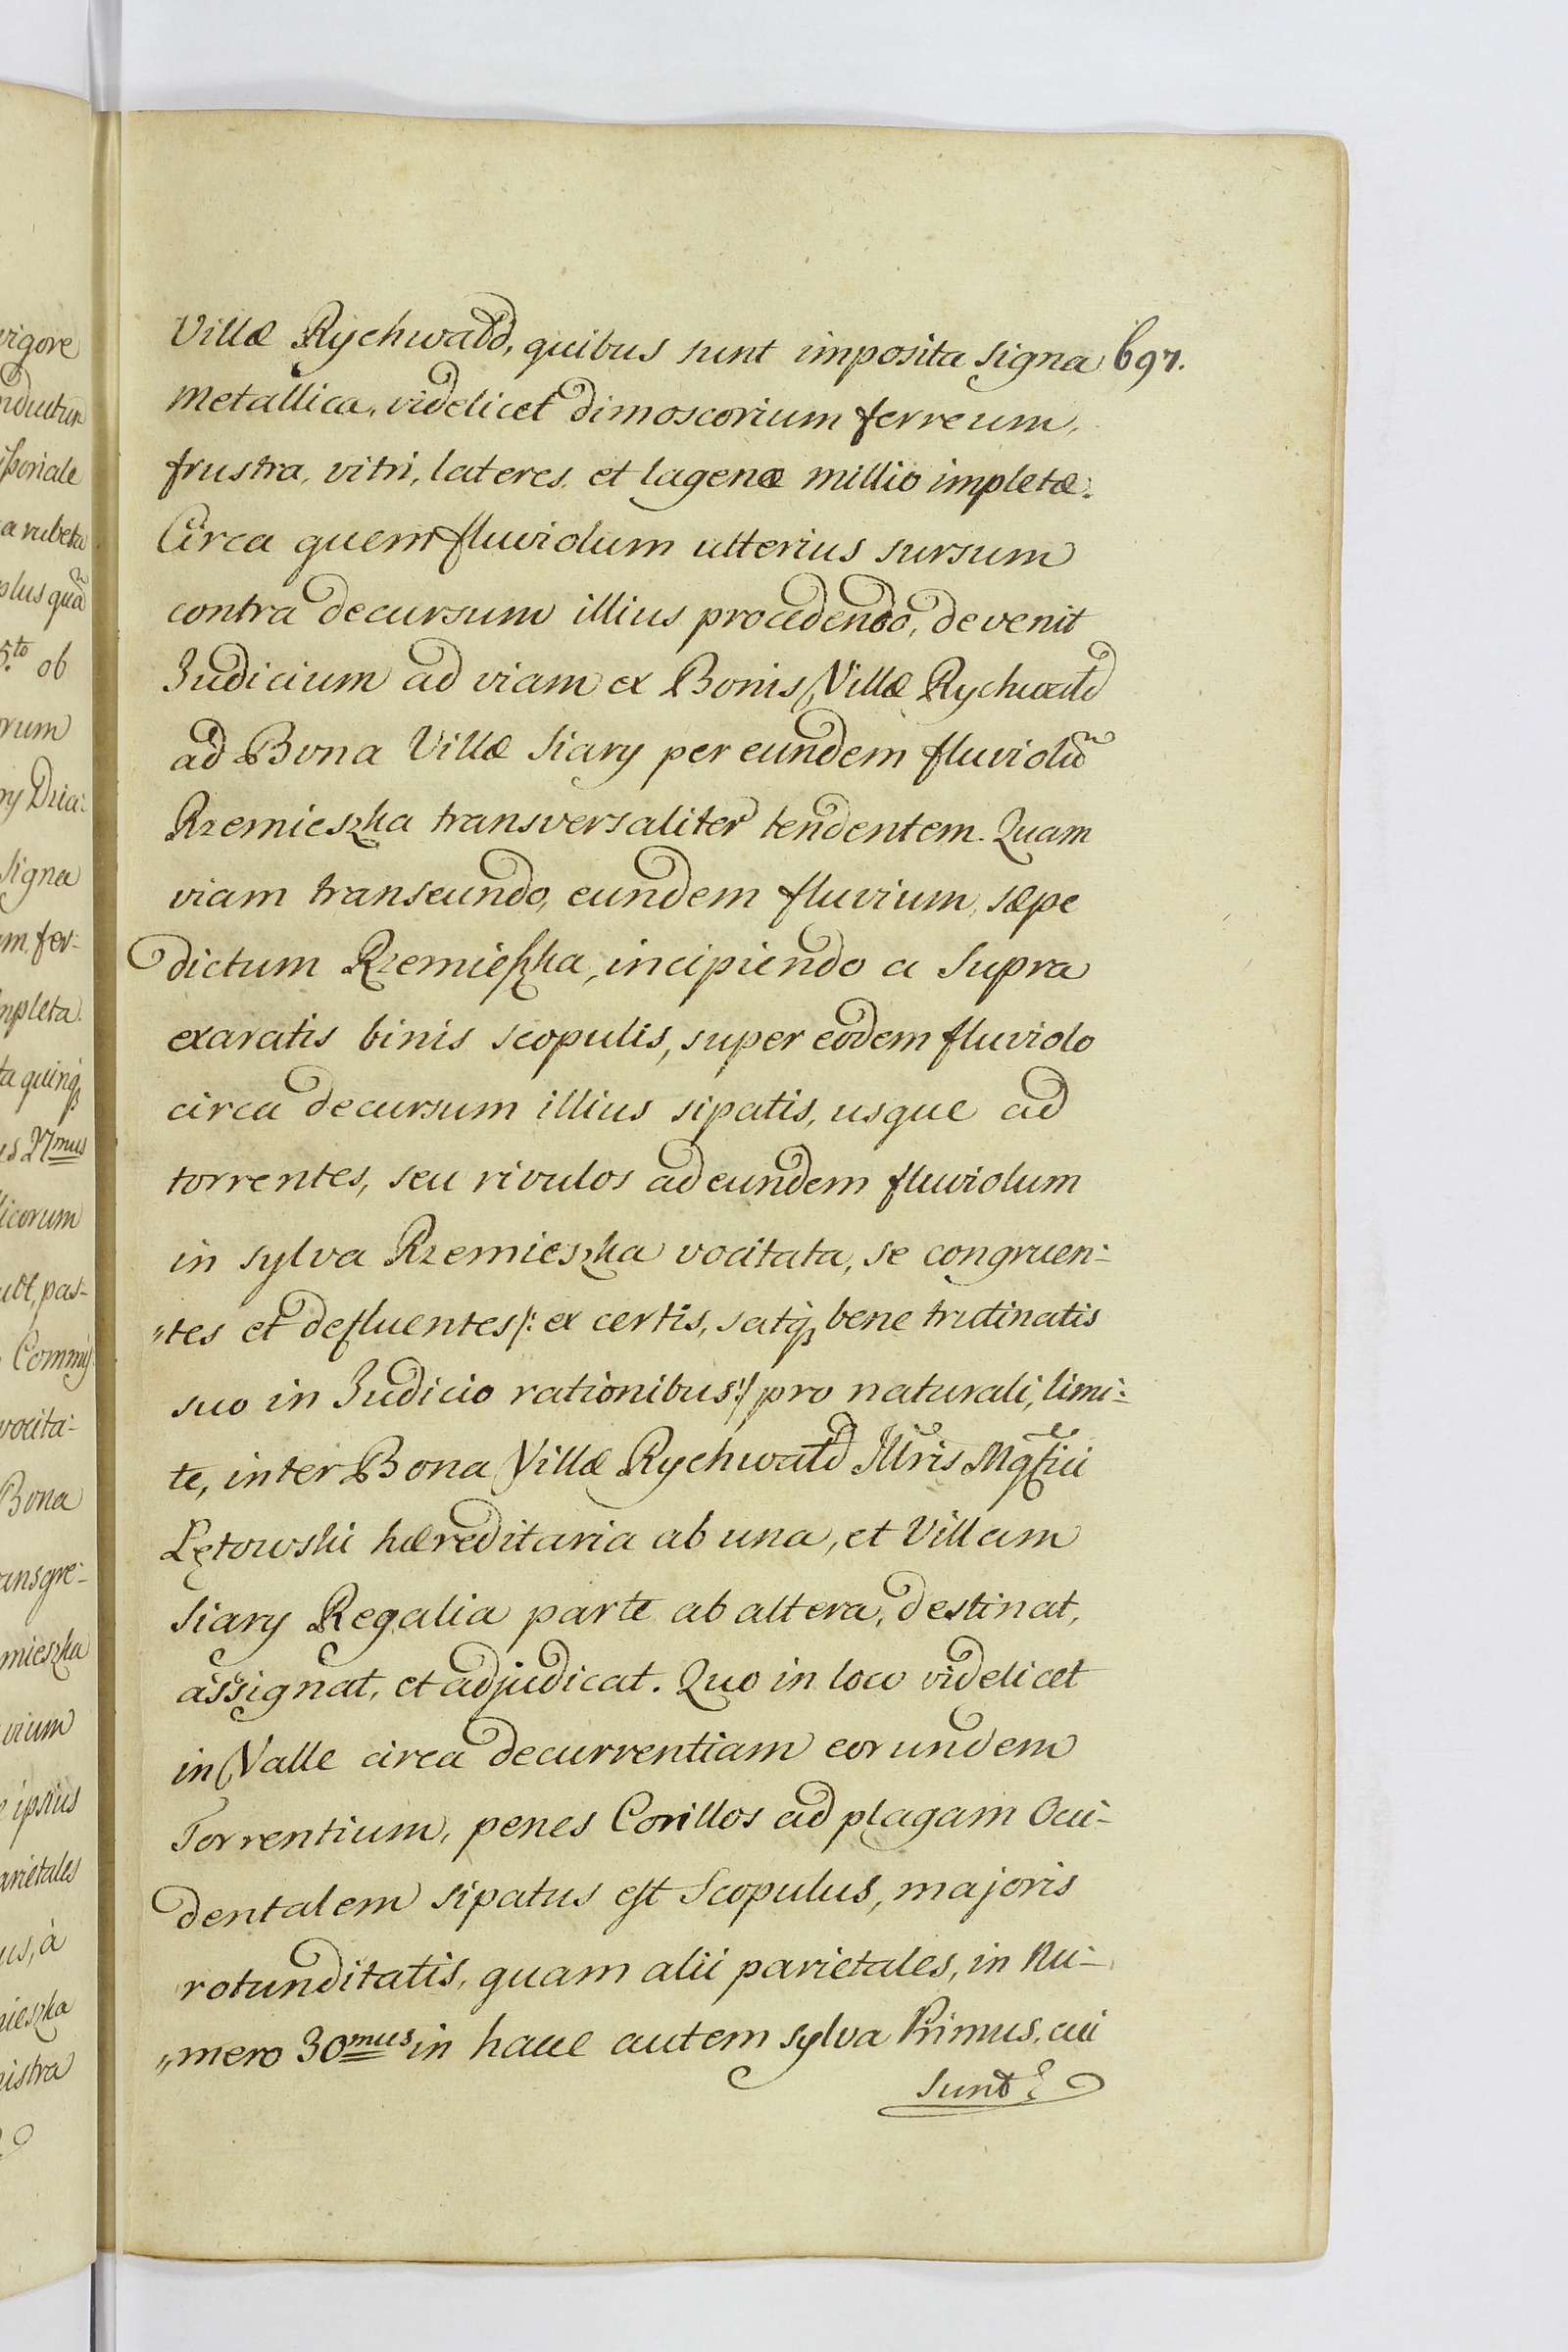 vigore
nduntur
isponiale
a rubeta
plus quã
5.to ob
orum
ny Dzia:
Signa
m. fer-
mpleta.
ta quinq3
es 27mus
licorum
, pas-
Commi
vocita:
Bona
ansgre-
mieszka
vium
e ipsius
arietales
us, à
mieszka
nistra
697.
Villæ Rychwald, quibus sunt imposita Signa
Metallica, videlicet dimoscorium ferreum,
frustra, vitri, lateres, et lagenæ millio impletæ.
Circa quem fluviolum ulterius sursum
contra decursum illius procedendo, devenit
Judicium ad viam ex Bonis Villæ Rychwald
ad Bona Villæ Siary per eundem fluviolũ
Rzemieszka transversaliter tendentem. Quam
viam transeundo, eundem fluvium, sæpe
dictum Rzemieszka, incipiendo a Supra
exaratis binis scopulis, super eodem fluviolo
circa decursum illius sipatis, usque ad
torrentes, seu rivulos ad eundem fluviolum
in sylva Rzemieszka vocitata, se congruen:
"tes et defluentes /: ex certis, satq3 bene trutinatis
suo in Judicio rationibus :/ pro naturali, limi:
te, inter Bona Villæ Rychwald Illris Mgfici
Lętowski hæreditaria ab una, et Villam
Siary Regalia parte ab altera, destinat,
assignat, et adjudicat. Quo in loco videlicet
in Valle circa decurrentiam eorundem
Torrentium, penes Corillos ad plagam Occi-
dentalem sipatus est Scopulus, majoris
rotunditatis, quam alii parietales, in Nu-
"mero 30mus in hacce autem sylva Primus, cui
Sunt